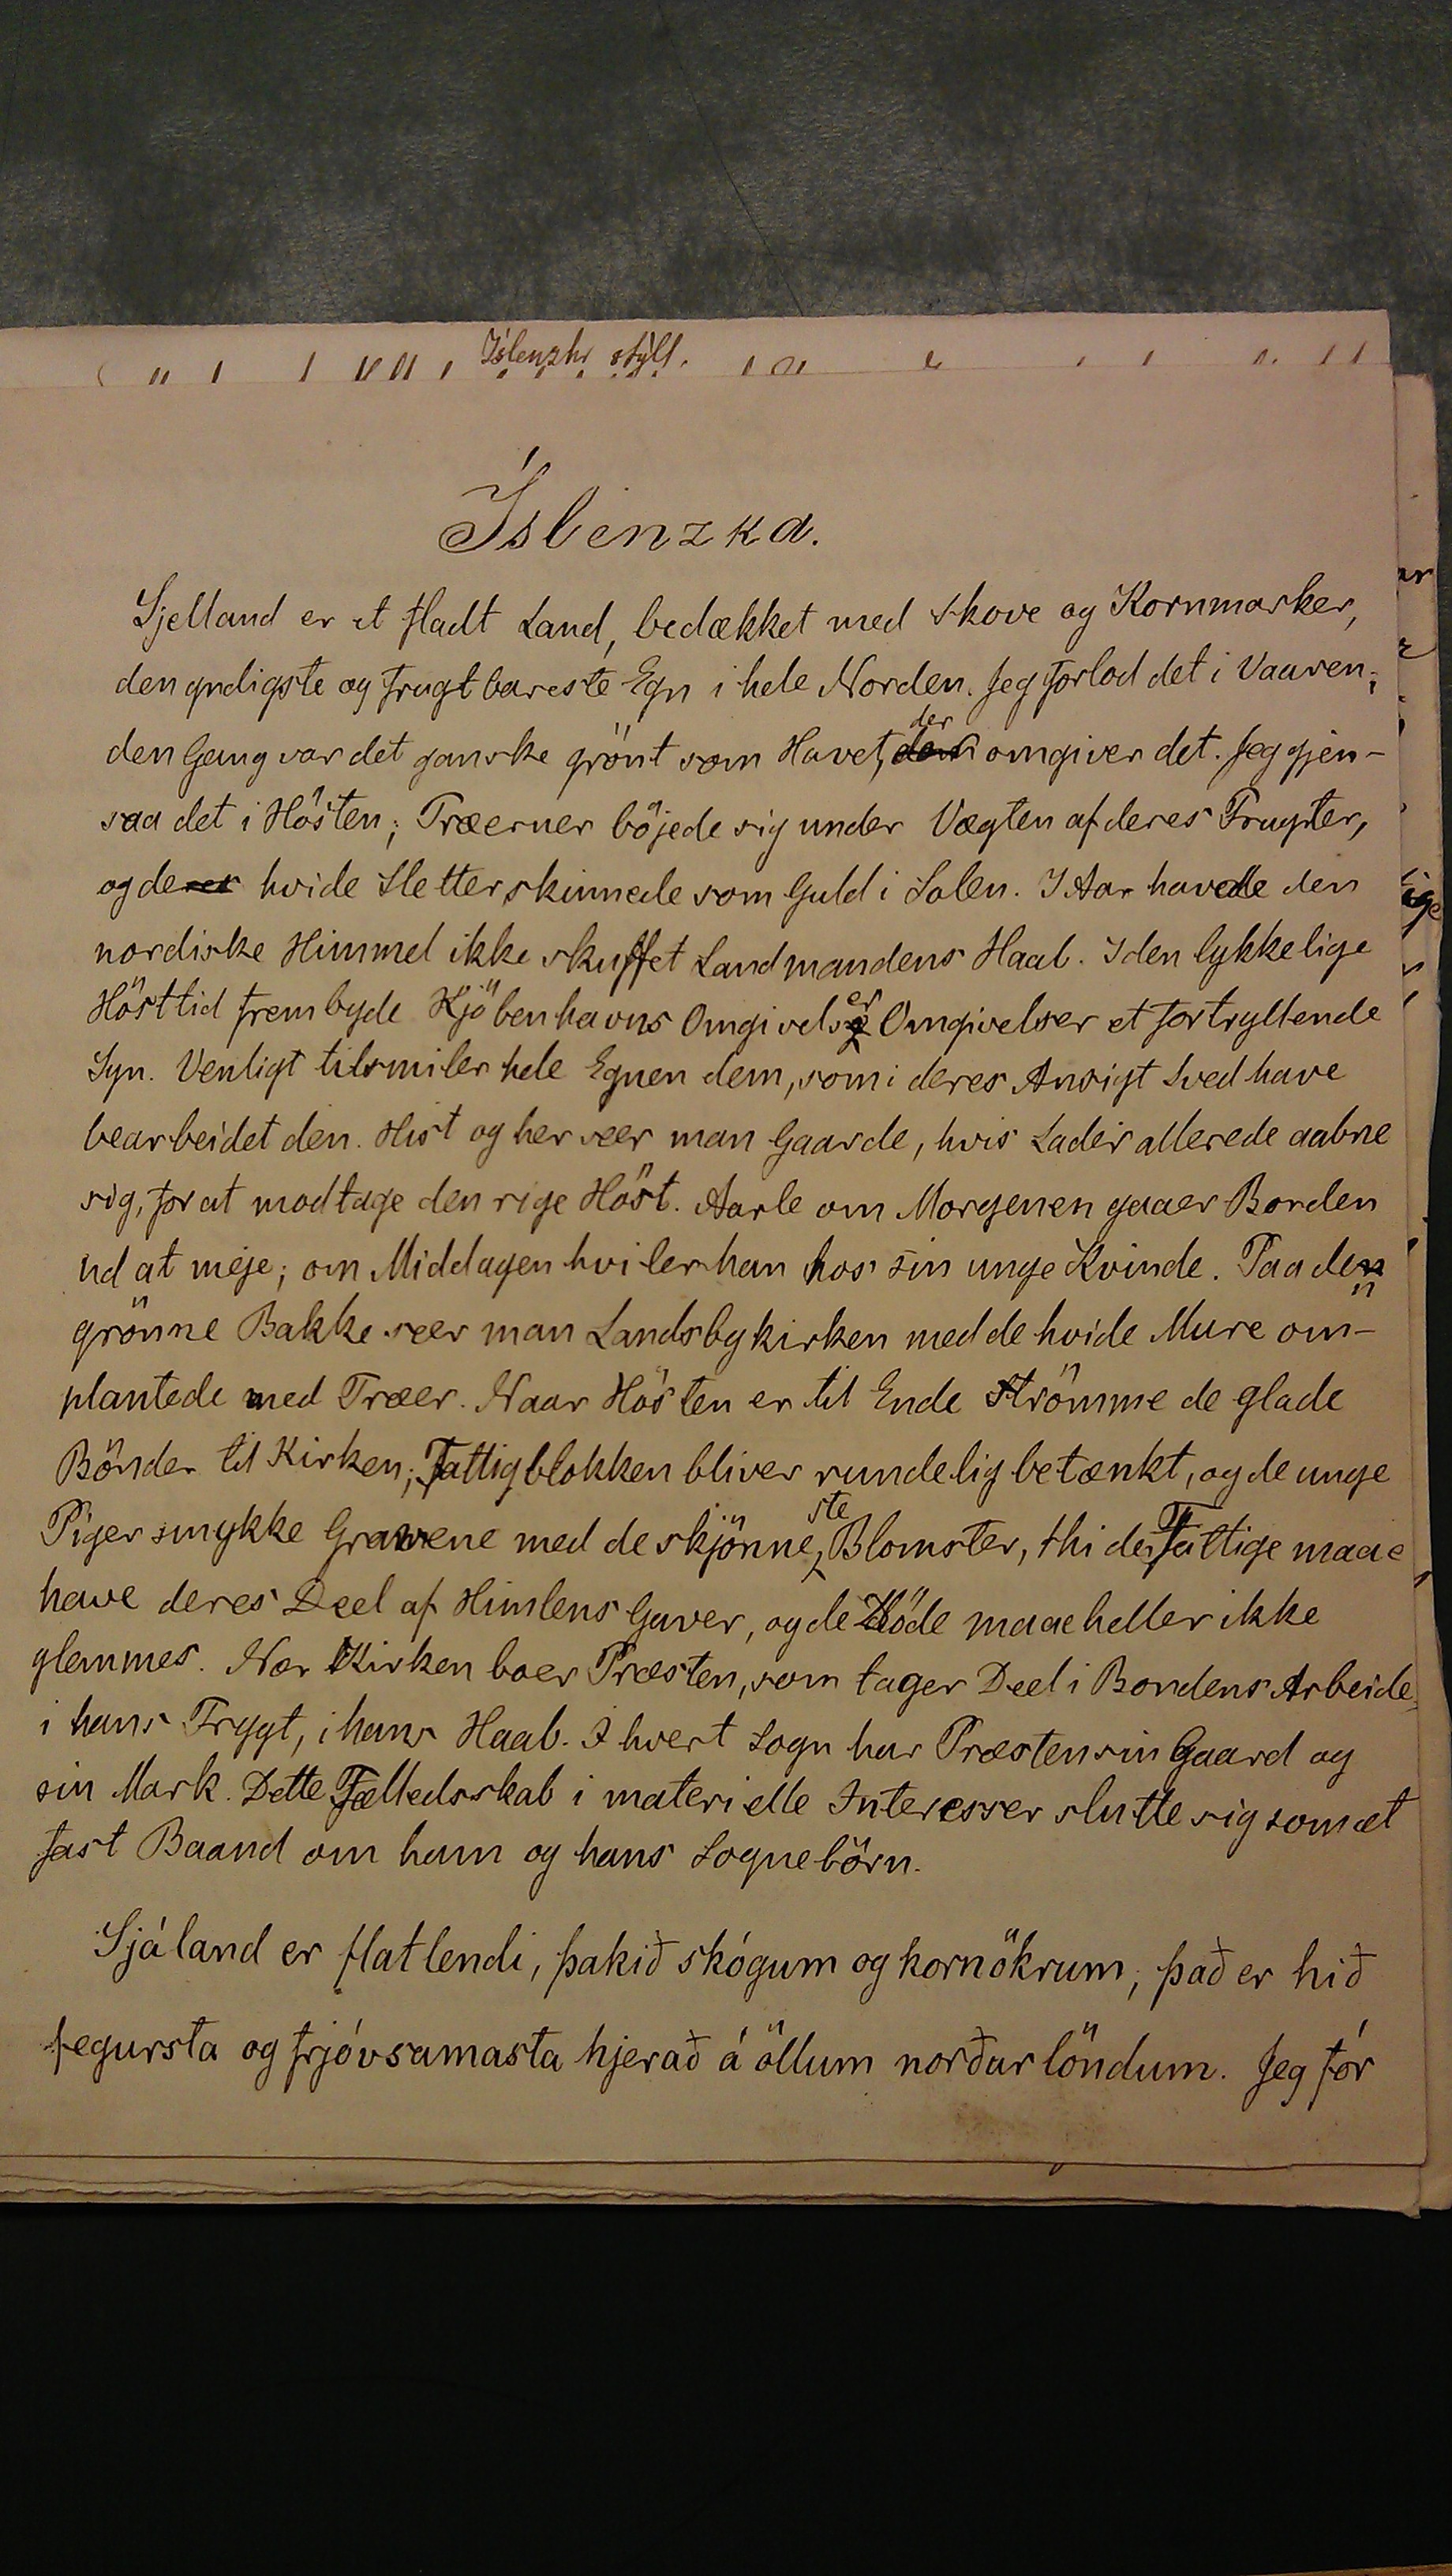 Íslenzkr stýll.
Íslenzka.
Sjelland er et fladt Land, bedækket med Skove og Kornmarker,
den yndigste og frugtbareste Egn i hele Norden. Jeg forlod det i Vaaren;
den Gang var det ganske grönt som Havet, der omgiver det. Jeg gjen-
saa det i Hösten; Træerner böjede sig under Vægten af deres Frugter,
og de hvide Sletter skinnede som Guld i Solen. I Aar havde den
nordiske Himmel ikke skuffet Landmandens Haab. I den lykkelige
Hösttid frembyde Kjöbenhavns Omgivelser Omgivelser et fortryllende
Syn. Venligt tilsmiler hele Egnen dem, som i deres Ansigt Sved have
bearbeidet den. Hist og her seer man Gaarde, hvis Lader allerede aabne
sig, for at modtage den rige Höst. Aarle om Morgenen gaaer Borden
ud at meje; om Middagen hviler han hos sin unge Kvinde. Paa den
grönne Bakke seer man Landsbykirken med de hvide Mure om-
plantede med Træer. Naar Hösten er til Ende strömme de glade
Bönder til Kirken; Fattigblokken bliver rundelig betænkt, og de unge
Piger smykke Gravene med de skjönneste Blomster, thi de Fattige maae
have deres Deel af Himlens Gaver, og de Döde maae heller ikke
glemmes. Nær Kirken boer Præsten, som tager Deel i Bondens Arbeide,
i hans Frygt, i hans Haab. I hvert Sogn har Præsten sin Gaard og
sin Mark. Dette Fælledsskab i materielle Interesser slutte sig som et
fast Baand om ham og hans Sognebörn.
Sjáland er flatlendi, þakið skógum og kornökrum; það er hið
fegursta og frjóvsamasta hjerað á öllum norðurlöndum. Jeg fór